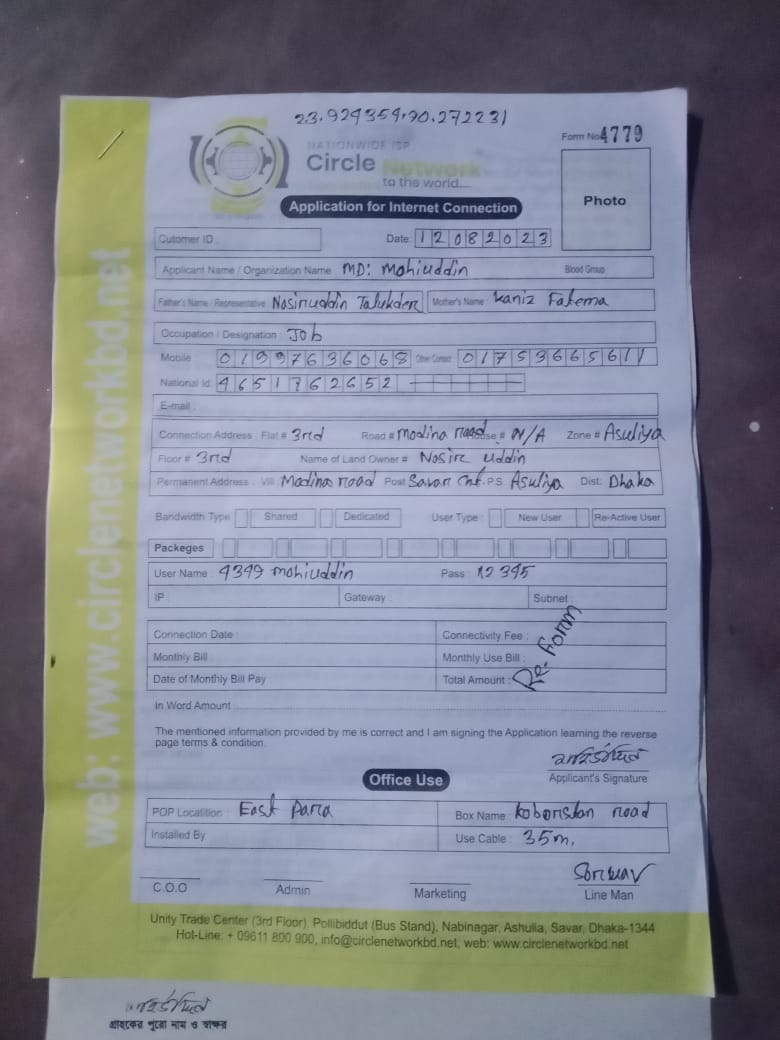 23.924359,90.272231
Form No 4779
NATIONWIDE ISP
Circle Network
to the world....
Photo
Application for Internet Connection
Cutomer ID : Date: 12082023
Applicant Name / Organization Name : MD: Mohiuddin Blood Group :
Father's Name / Representative : Nosiruddin Talukder Mother's Name : Kaniz Fatema
Occupation / Designation : Job
Mobile : 01997636068 Other Contact : 01753665611
National Id : 4651762652
E-mail :
Connection Address : Flat # 3rd Road # Modina road House # N/A Zone # Asuliya
Floor # 3rd Name of Land Owner # Nosir uddin
Permanent Address : Vill Modina road Post Savar Cnt. P.S Asuliya Dist: Dhaka
Bandwidth Type Shared Dedicated User Type : New User Re-Active User
Packeges
User Name : 4349 mohiuddin Pass : 12345
IP : Gateway Subnet :
Connection Date : Connectivity Fee :
Monthly Bill : Monthly Use Bill :
Date of Monthly Bill Pay Total Amount :
Re-Form
In Word Amount
The mentioned information provided by me is correct and I am signing the Application learning the reverse
page terms & condition.
Applicant's Signature
Office Use
POP Locatition : East Para Box Name : koborstan road
Installed By Use Cable : 35m.
C.O.O Admin Marketing Line Man
Unity Trade Center (3rd Floor), Pollibiddut (Bus Stand), Nabinagar, Ashulia, Savar, Dhaka-1344
Hot-Line: + 09611 800 900, info@circlenetworkbd.net, web: www.circlenetworkbd.net
web: www.circlenetworkbd.net
গ্রাহকের পুরো নাম ও স্বাক্ষর